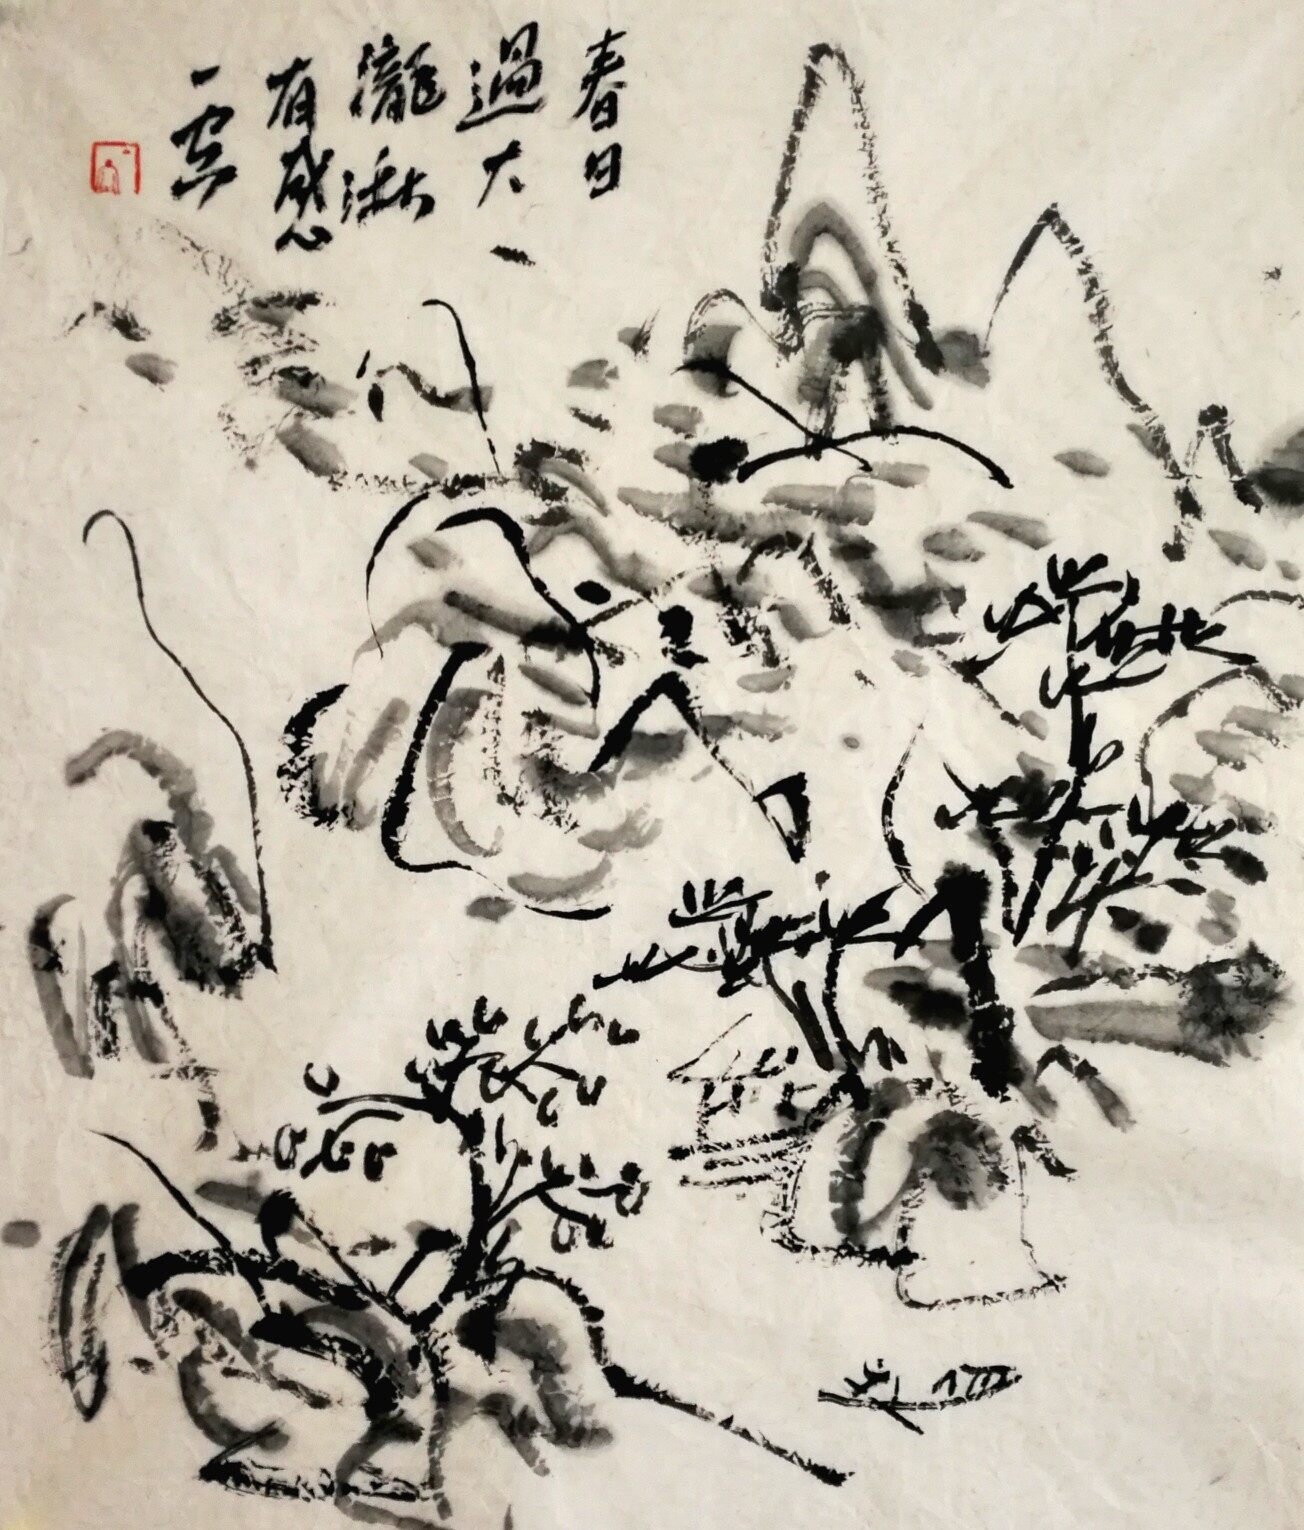 春日
過大
瀧湫
有感
一虛